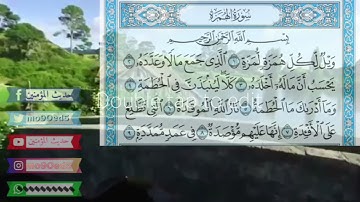 سُورَةُ الهُمَزَةِ
بِسْمِ اللَّهِ الرَّحْمَٰنِ الرَّحِيمِ
وَيْلٌ لِّكُلِّ هُمَزَةٍ لُّمَزَةٍ ١ الَّذِي جَمَعَ مَالًا وَعَدَّدَهُ ٢
يَحْسَبُ أَنَّ مَالَهُ أَخْلَدَهُ ٣ كَلَّا لَيُنبَذَنَّ فِي الْحُطَمَةِ ٤
وَمَا أَدْرَاكَ مَا الْحُطَمَةُ ٥ نَارُ اللَّهِ الْمُوقَدَةُ ٦ الَّتِي تَطَّلِعُ
عَلَى الْأَفْئِدَةِ ٧ إِنَّهَا عَلَيْهِم مُّؤْصَدَةٌ ٨ فِي عَمَدٍ مُّمَدَّدَةٍ ٩
حديث المؤمنين
mo90ed5
حديث المؤمنين